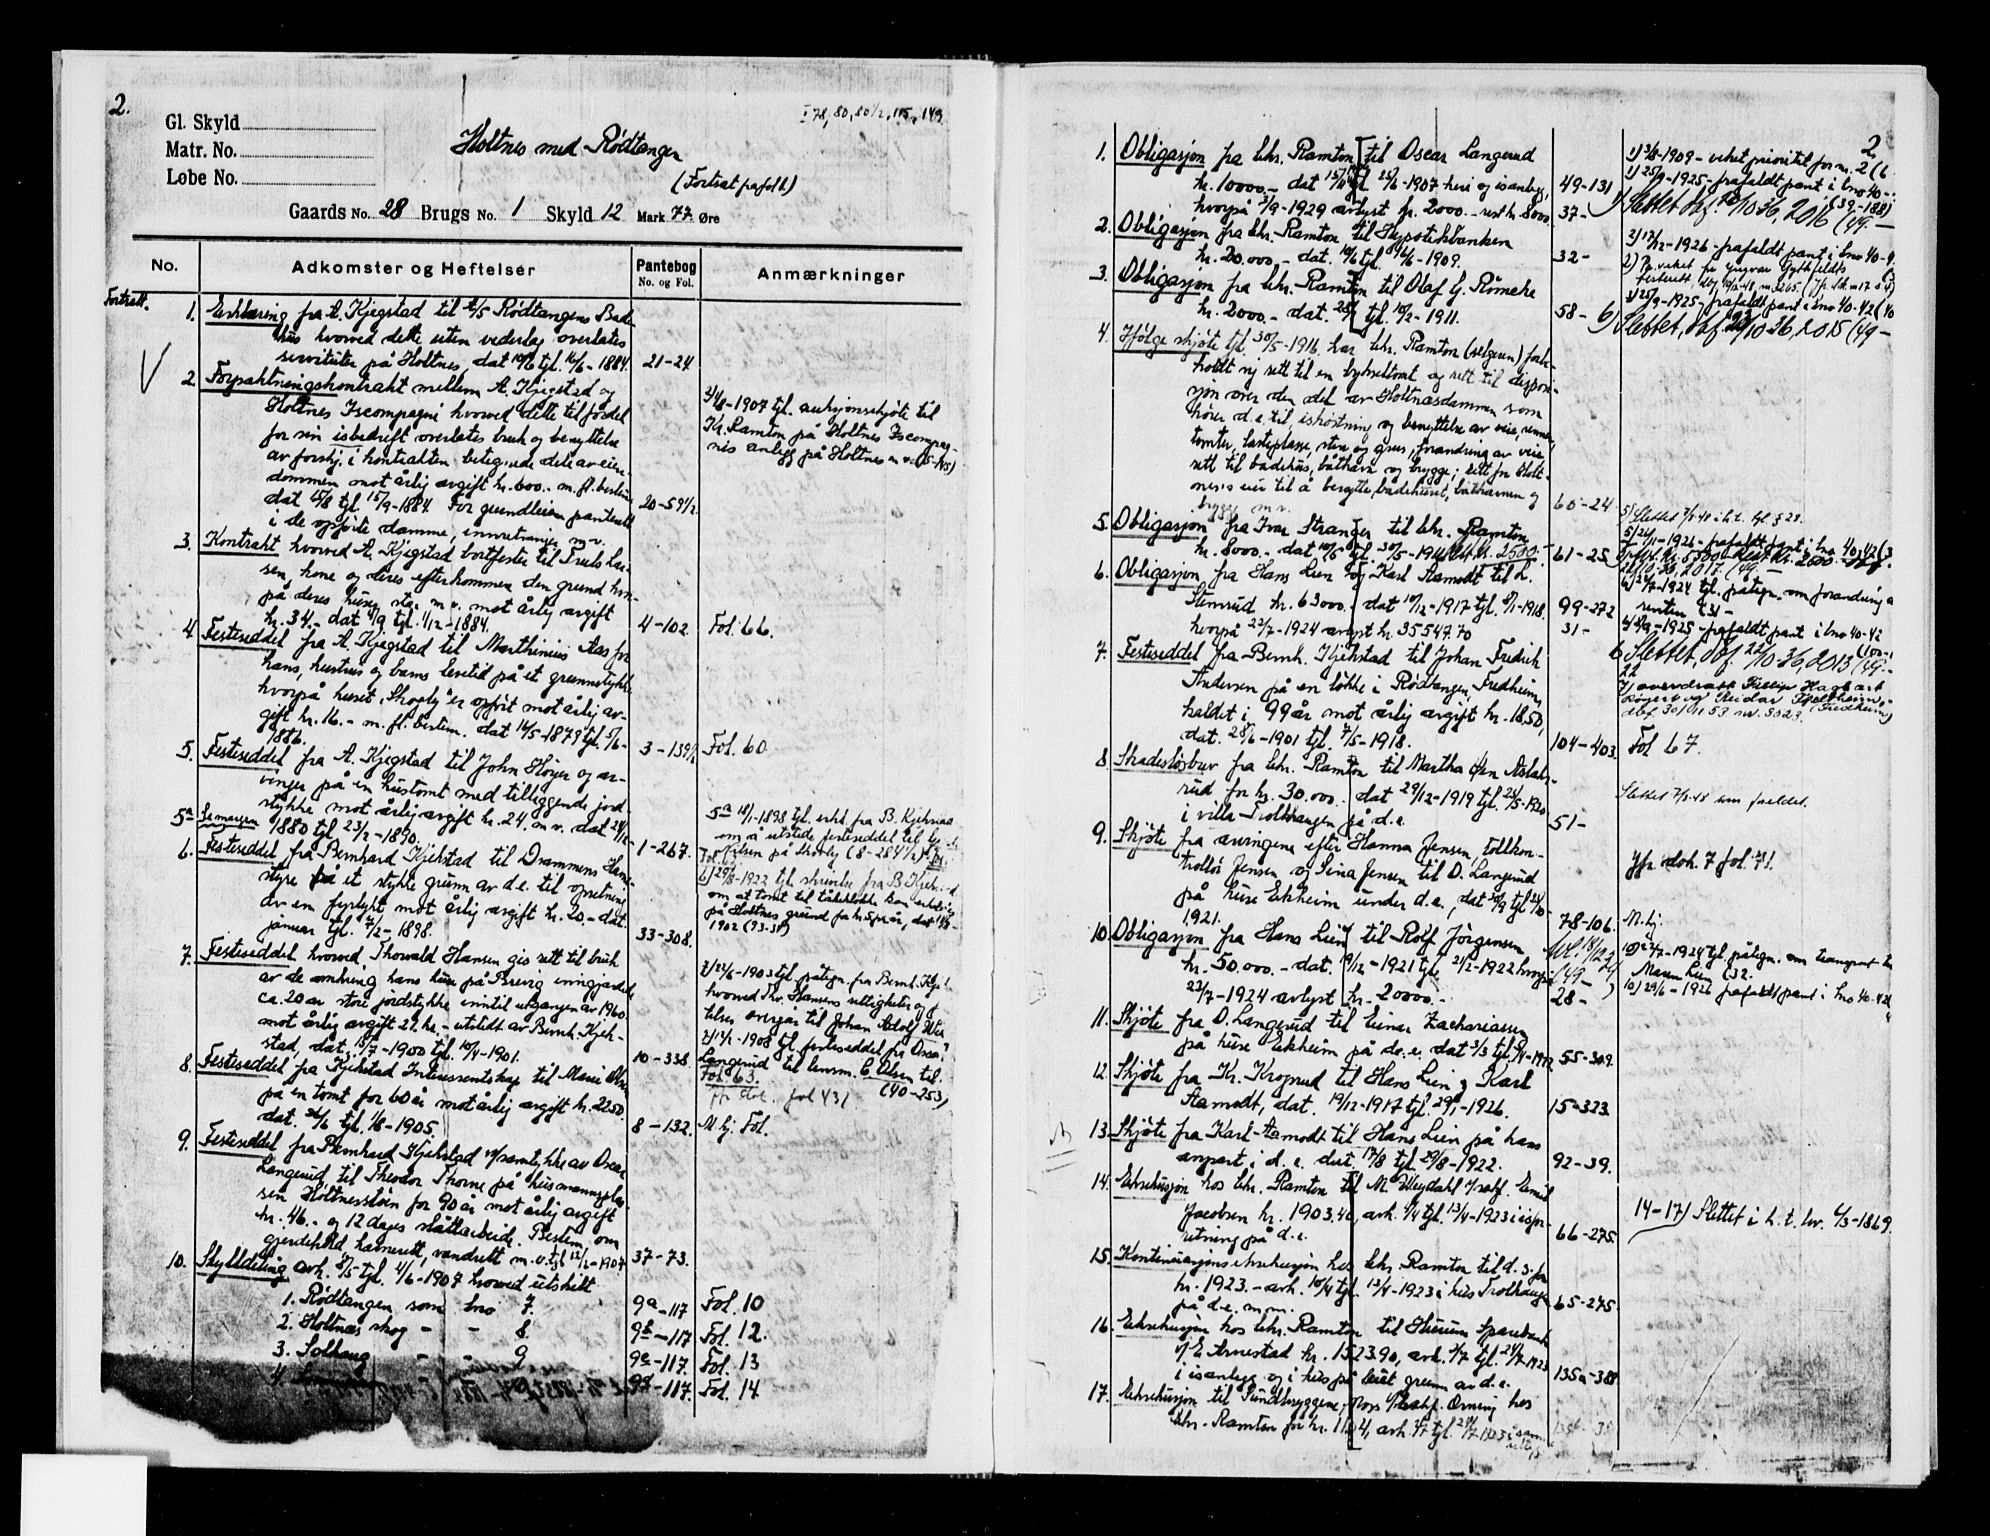 2.
I 78, 80, 80 1/2, 115, 149
Gl. Skyld
Matr. No.
Løbe No.
Holtnes med Rødtangen
(Fortsat på fol 6)
Gaards No. 28 Brugs No. 1 Skyld 12 Mark 77 Øre
No.
Adkomster og Heftelser
Pantebog
No. og Fol.
Anmærkninger
Fortsatt.
1. Erklæring fra A. Kjegstad til A/S Rødtangens Bade-
hus hvorved dette uten vederlag overlates
servituter på Holtnes, dat 10/6 tjl. 16/6-1884. 21-24
2. Forpaktningskontrakt mellem A. Kjegstad og
Holtnes Iscompagni hvorved dette til fordel
for sin isbedrift overlates bruk og benyttelse
av forskj. i kontrakten betegnede dele av eien-
dommen mot årlig avgift kr. 600.- m. fl. bestem.
dat 15/8 tjl 15/9-1884. For grundleien panterett 20-59 1/2
i de opførte damme, innretninger m.v.
2) 4/8-1907 tjl. auksjonsskjøte til
Kr. Ramton på Holtnes Iscompag-
nis anlegg på Holtnes m.v. (35-145)
3. Kontrakt hvorved A. Kjegstad bortfester til Truls Lar-
sen, kone og deres efterkommere den grund hvor-
på deres huse står m.v. mot årlig avgift
kr. 34.- dat 4/9 tjl. 1/12-1884. 4-102. Fol. 66.
4. Festeseddel fra A. Kjegstad til Marthinius Aas for
hans, hustrus og barns levetid på et grunnstykke
hvorpå huset "Skogly" er opført mot årlig av-
gift kr. 16.- m. fl. bestem. dat 14/5-1879 tjl. 5/6-
1886. 3-139 1/2 Fol. 60
5. Festeseddel fra A. Kjegstad til John Høyer og ar-
vinger på en hustomt med tilliggende jord-
stykke mot årlig avgift kr. 24, m.v. dat 24/12-
1880 tjl. 23/2-1890. 1-267.
5a 18/1-1898 tjl. erkl. fra B. Kjekstad
om å utstede festeseddel til
Nilsen på Skogly (8-284 1/2)
6. Festeseddel fra Bernhard Kjekstad til Drammens Havne-
styre på et stykke grunn av d.e. til opretning
av en fyrlykt mot årlig avgift kr. 20.- dat.
januar tjl. 7/2-1898. 33-308.
6) 29/8-1922 tjl. skrivelse fra B. Kjekstad
om at tomt til tåkeklokke kan erholdes
på Holtnes grund for kr. 5 pr år, dat
1902 (93-31)
7. Festeseddel hvorved Thorvald Hansen gis rett til bruk
av de omkring hans huse på Breivig inngjerdede
ca. 20 ar store jordstykke inntil utgangen av 1960
mot årlig avgift 27. kr - utstedt av Bernh. Kjek-
stad, dat. 13/7-1900 tjl. 10/4-1901. 10-338
7) 22/6-1903 tjl. påtegn. fra Bernh. Kjek
hvorved Thv. Hansens rettigheter
overgår til Johan Adolf
7) 1/2-1908 tjl. festeseddel fra Oscar
Langerud til lensm. C. Olsen
Fol. 63. (40-253)
8. Festeseddel fra Kjekstad Interessentskap til Marie Olsen
på en tomt for 60 år mot årlig avgift kr. 22.50
dat. 26/6 tjl. 1/8-1905 8-132. M. bj. Fol.
9. Festeseddel fra Bernhard Kjekstad m/samtykke av Oscar
Langerud, til Theodor Thorne på husmannsplas-
sen Holtnesstøen for 90 år mot årlig avgift
kr. 46.- og 12 dages slåttarbeide. Bestem. om
gjerdehold, havnerett, vandrett m.v. tjl 12/2-1907 37-73.
10. Skylddeling avh. 8/5 tjl. 4/6-1907 hvorved utskilt
1. Rødtangen som bno 7. 9a-117 Fol. 10
2. Holtnæs skog - - 8 9b-117 Fol. 12.
3. Solhaug - - 9 9c-117. Fol. 13
4. 9d-117. Fol. 14
2.
1. Obligasjon fra Chr. Ramton til Oscar Langerud
kr. 10000.- dat 15/6 tjl 25/6-1907 heri og isanlegg, 49-131
hvorpå 3/9-1929 avlyst kr. 2000.- rest kr. 8000 37-
1) 3/8-1909 - veket prioritet for nr. 2 (6
1) 25/9-1925 - frafaldt pant i bno 40-
(39-188)
Slettet, dbf. 22/10 36, 2016 (49.-
2. Obligasjon fra Chr. Ramton til Hypotekbanken
kr. 20.000.- dat. 10/6 tjl. 16/6-1909. 32-
2) 17/12-1926 - frafaldt pant i bno 40-4
3. Obligasjon fra Chr. Ramton til Olaf G. Rømcke
kr. 2000.- dat. tjl. 10/2-1911. 58-
3) 25/9-1925 - frafaldt pant i bno 40-42 (40
Slettet, dbf. 22/10-36, 2015 (49-
4. Ifølge skjøte tjl. 30/5-1916, har Chr. Ramton (selgeren) forbe-
holdt sig rett til en bykseltomt og rett til disposi-
sjon over den del av Holtnesdammen som
hører d.e. til, ishøstning og benyttelse av veie, renner
tomter, lasteplasse, sten og grus, forandring av veie
rett til badehus, båthavn og brygge; rett for Holt-
nesis eier til å benytte badehuset, båthavnen og 60-24
brygge m.v.
5. Obligasjon fra Ivar Stranger til Chr. Ramton
kr. 8000.- dat 10/5 tjl 30/5-1916 Rest kr. 2500.- 61-25
5) Slettet 7/2-48 i h.t. tgl. § 28.
5) 24/11-1926 - frafaldt pant i bno 40-42 (3
22/10 36, 2017. (49.-
6. Obligasjon fra Hans Lien og Karl Aamodt til L.
Stenrud kr. 63000.- dat 19/12-1917 tjl. 8/1-1918. 99-272
hvorpå 22/7-1924 avlyst kr. 35547.70 31-
6) 22/7-1924 tjl. påtegn. om forandring a
renten (31-
6) 25/9-1925 - frafaldt pant i bno 40-42
(100-
6 Slettet, dbf. 22/10-36, 2013 (49.-
7. Festeseddel fra Bernh. Kjekstad til Johan Fredrik
Andersen på en løkke i Rødtangen, Fredheim,
kaldet i 99 år mot årlig avgift kr. 18.50,
dat. 28/6-1901 tjl. 7/5-1918. 104-403. Fol 67.
dbf 30/01 53 nr. 3023. (Fredheim)
8. Skadesløsbrev fra Chr. Ramton til Martha Aslaks-
rud for kr. 30.000.- dat 29/12-1919 tjl. 28/5-1920
i villa Trolhaugen på d.e. 51-
Slettet 7/2-48 som foreldet.
9. Skjøte fra arvingene efter Hanna Jensen, tollkon-
trollør Jensen og Sina Jensen til O. Langerud
på huse Ekheim under d.e., dat 30/9 tjl 24/10-
1921. 78-106. M. bj.
Jfr. dok. 7 fol. 71.
10. Obligasjon fra Hans Lien til Rolf Jørgensen
kr. 50.000.- dat. 9/12-1921 tjl. 21/2-1922 hvorpå (49-
22/7-1924 avlyst kr. 20000.- 28-
10) 22/7-1924 tjl. påtegn. om transport til
Maren Lien (32.
10) 29/6-1926 frafaldt pant i bno 40-42
11. Skjøte fra O. Langerud til Einar Zachariassen
på huse Ekheim på d.e. dat 3/3 tjl. 4/4-1922 55-309.
12. Skjøte fra Kr. Krogsrud til Hans Lien og Karl
Aamodt, dat. 19/12-1917 tjl. 29/1-1926. 15-323
13. Skjøte fra Karl Aamodt til Hans Lien på hans
anpart i d.e. dat. 17/8 tjl. 29/8-1922. 92-39.
14. Eksekusjon hos Chr. Ramton til M. Weydahl v/sakf. Emil
Jacobsen kr. 1903.40, avh. 9/4 tjl. 13/4-1923 i isfor-
retning på d.e. 66-275.
14-17) Slettet i h.t. lov. 6/3-1869.
15. Kontinuasjonseksekusjon hos Chr. Ramton til d.s. for
kr. 1923.- avh. 10/4 tjl. 13/4-1923 i hus Trolhaugen 65-275.
på d.e. m.m.
16. Eksekusjon hos Chr. Ramton til Hurum Sparebank
v/ E. Arnestad kr. 1523.90, avh. 3/7 tjl. 24/7-1923
i isanlegg og i hus på leiet grunn av d.e. 135a-388
17. Eksekusjon til Sundbryggene, Moss v/sakf. Orning hos
Chr. Ramton for kr. avh. tjl. 24/7 1923 i samme